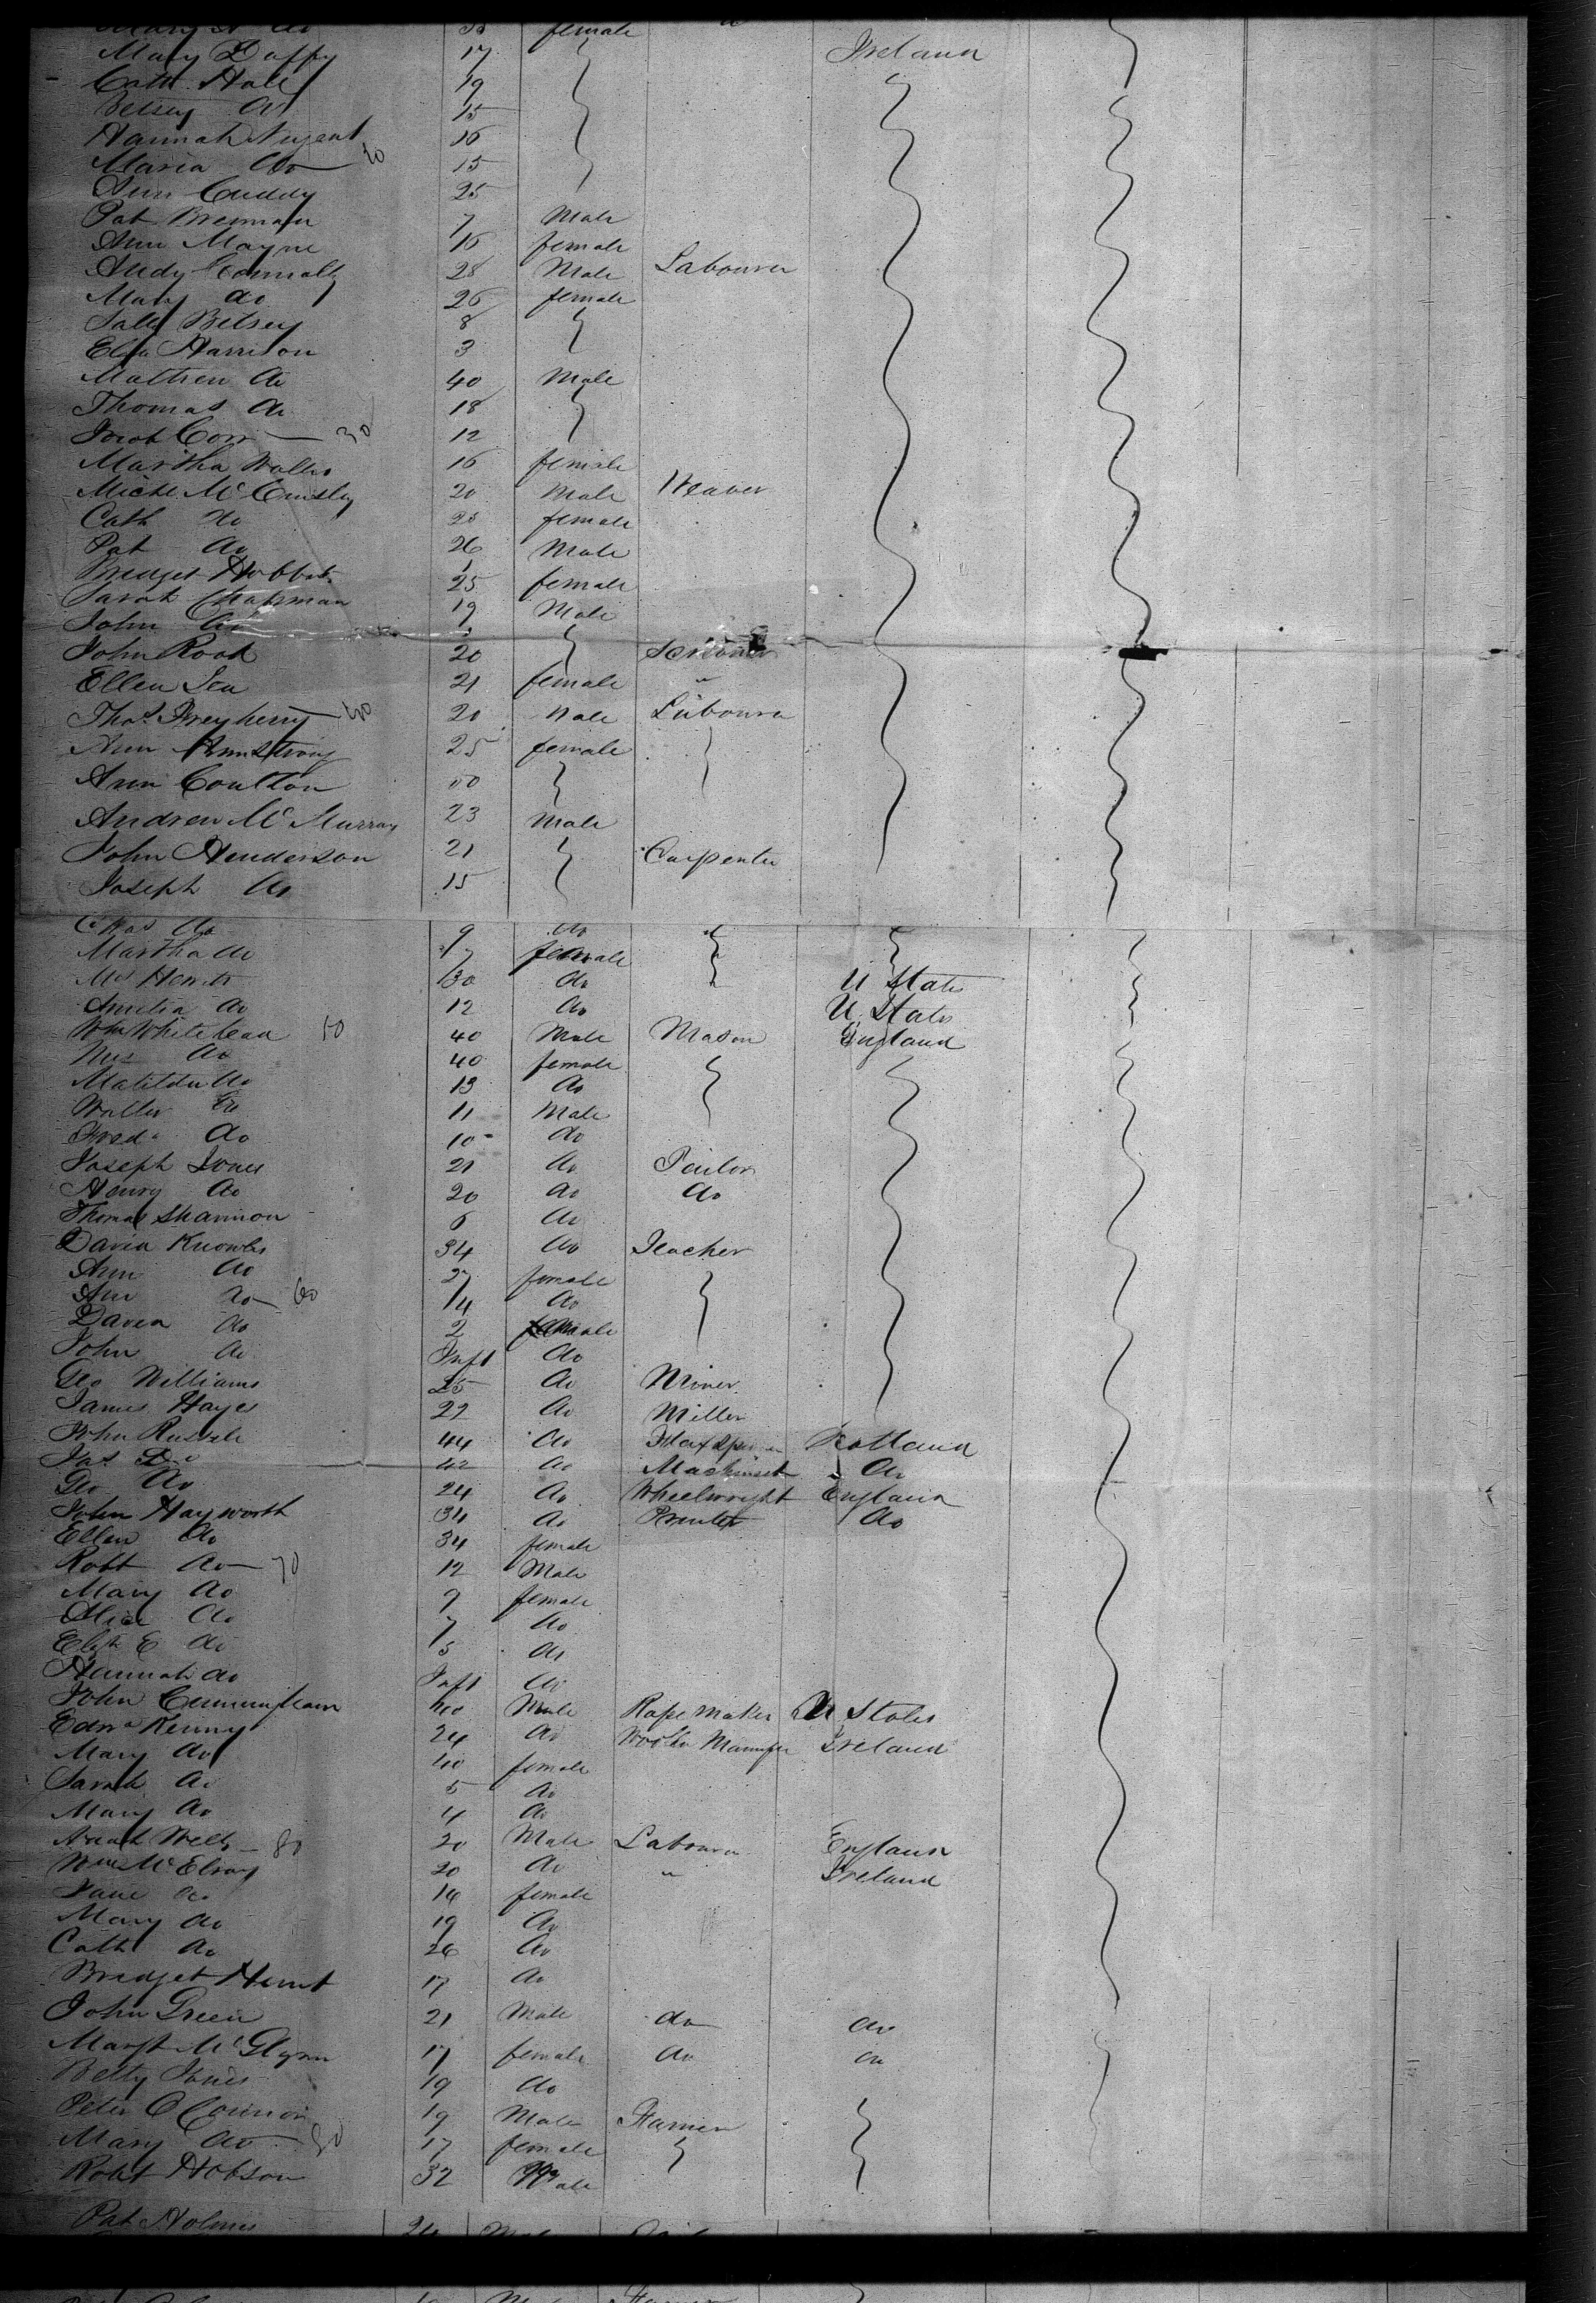 female
Mary Duffy 17 Ireland
Cath Hall 19
Betsey do 15
Hannah Nugent 16
Maria do 15
Ann Cuddy 25
Pat Brennan 7 Male
Ann Mayne 16 female
Andy Connolly 28 Male Labourer
Mary do 26 female
Sally Betsey 8
Eliza Harrison 3
Mathew do 40 Male
Thomas do 18
12
Martha Walles 16 female
Michl 20 Male Weaver
Cath do female
Pat do 26 Male
Bridget
Sarah Chapman 25 female
John do 19 Male
John Rook 20
Ellen Lea 21 female "
Thos 20 Male Labourer
Ann Armstrong 25 female
Ann Coulton
Andrew McMurray 23 Male
John Henderson 21 Carpenter
Joseph do 15
Chas do 9 do
Martha do female
30 do U States
Amelia do 12 do U. States
Wm Whitehead 50 40 Male Mason England
Mrs do 40 female
Matilda do 13 do
Walter do 11 Male
Fred. do 10 do
Joseph Jones 21 do
Henry do 20 do do
Thomas Shannon 6 do
David Knowles 34 do Teacher
Ann do 27 female
Ann do 60 14 do
David do 2
John do Inft do
Geo Williams 25 do Miner
James Hayes 22 do Miller
John Russell 44 do Scotland
Jas Do 42 do Machinist do
Geo do 24 do Wheelwright England
John Hayworth 34 do Printer do
Ellen do 34 female
Robt do 70 12 Male
Mary do 9 female
Alice do 7 do
Elizth E do 5 do
Hannah do Inft do
John Cunningham 40 Male Rope maker U States
Edwd Kenny 24 do Ireland
Mary do 40 female
Sarah do 5 do
Mary do 4 do
Wells 80 20 Male Labourer England
Wm McElroy 20 do " Ireland
Jane do female
Mary do 19 do
Cath do 26 do
Bridget 17 do
John Green 21 Male do do
Margt McGlynn 17 female do do
Betty Jones 19 do
Peter O Connor 19 Male Farmer
Mary do 90 17 female
Robt Hobson 32 Male
Pat Holmes